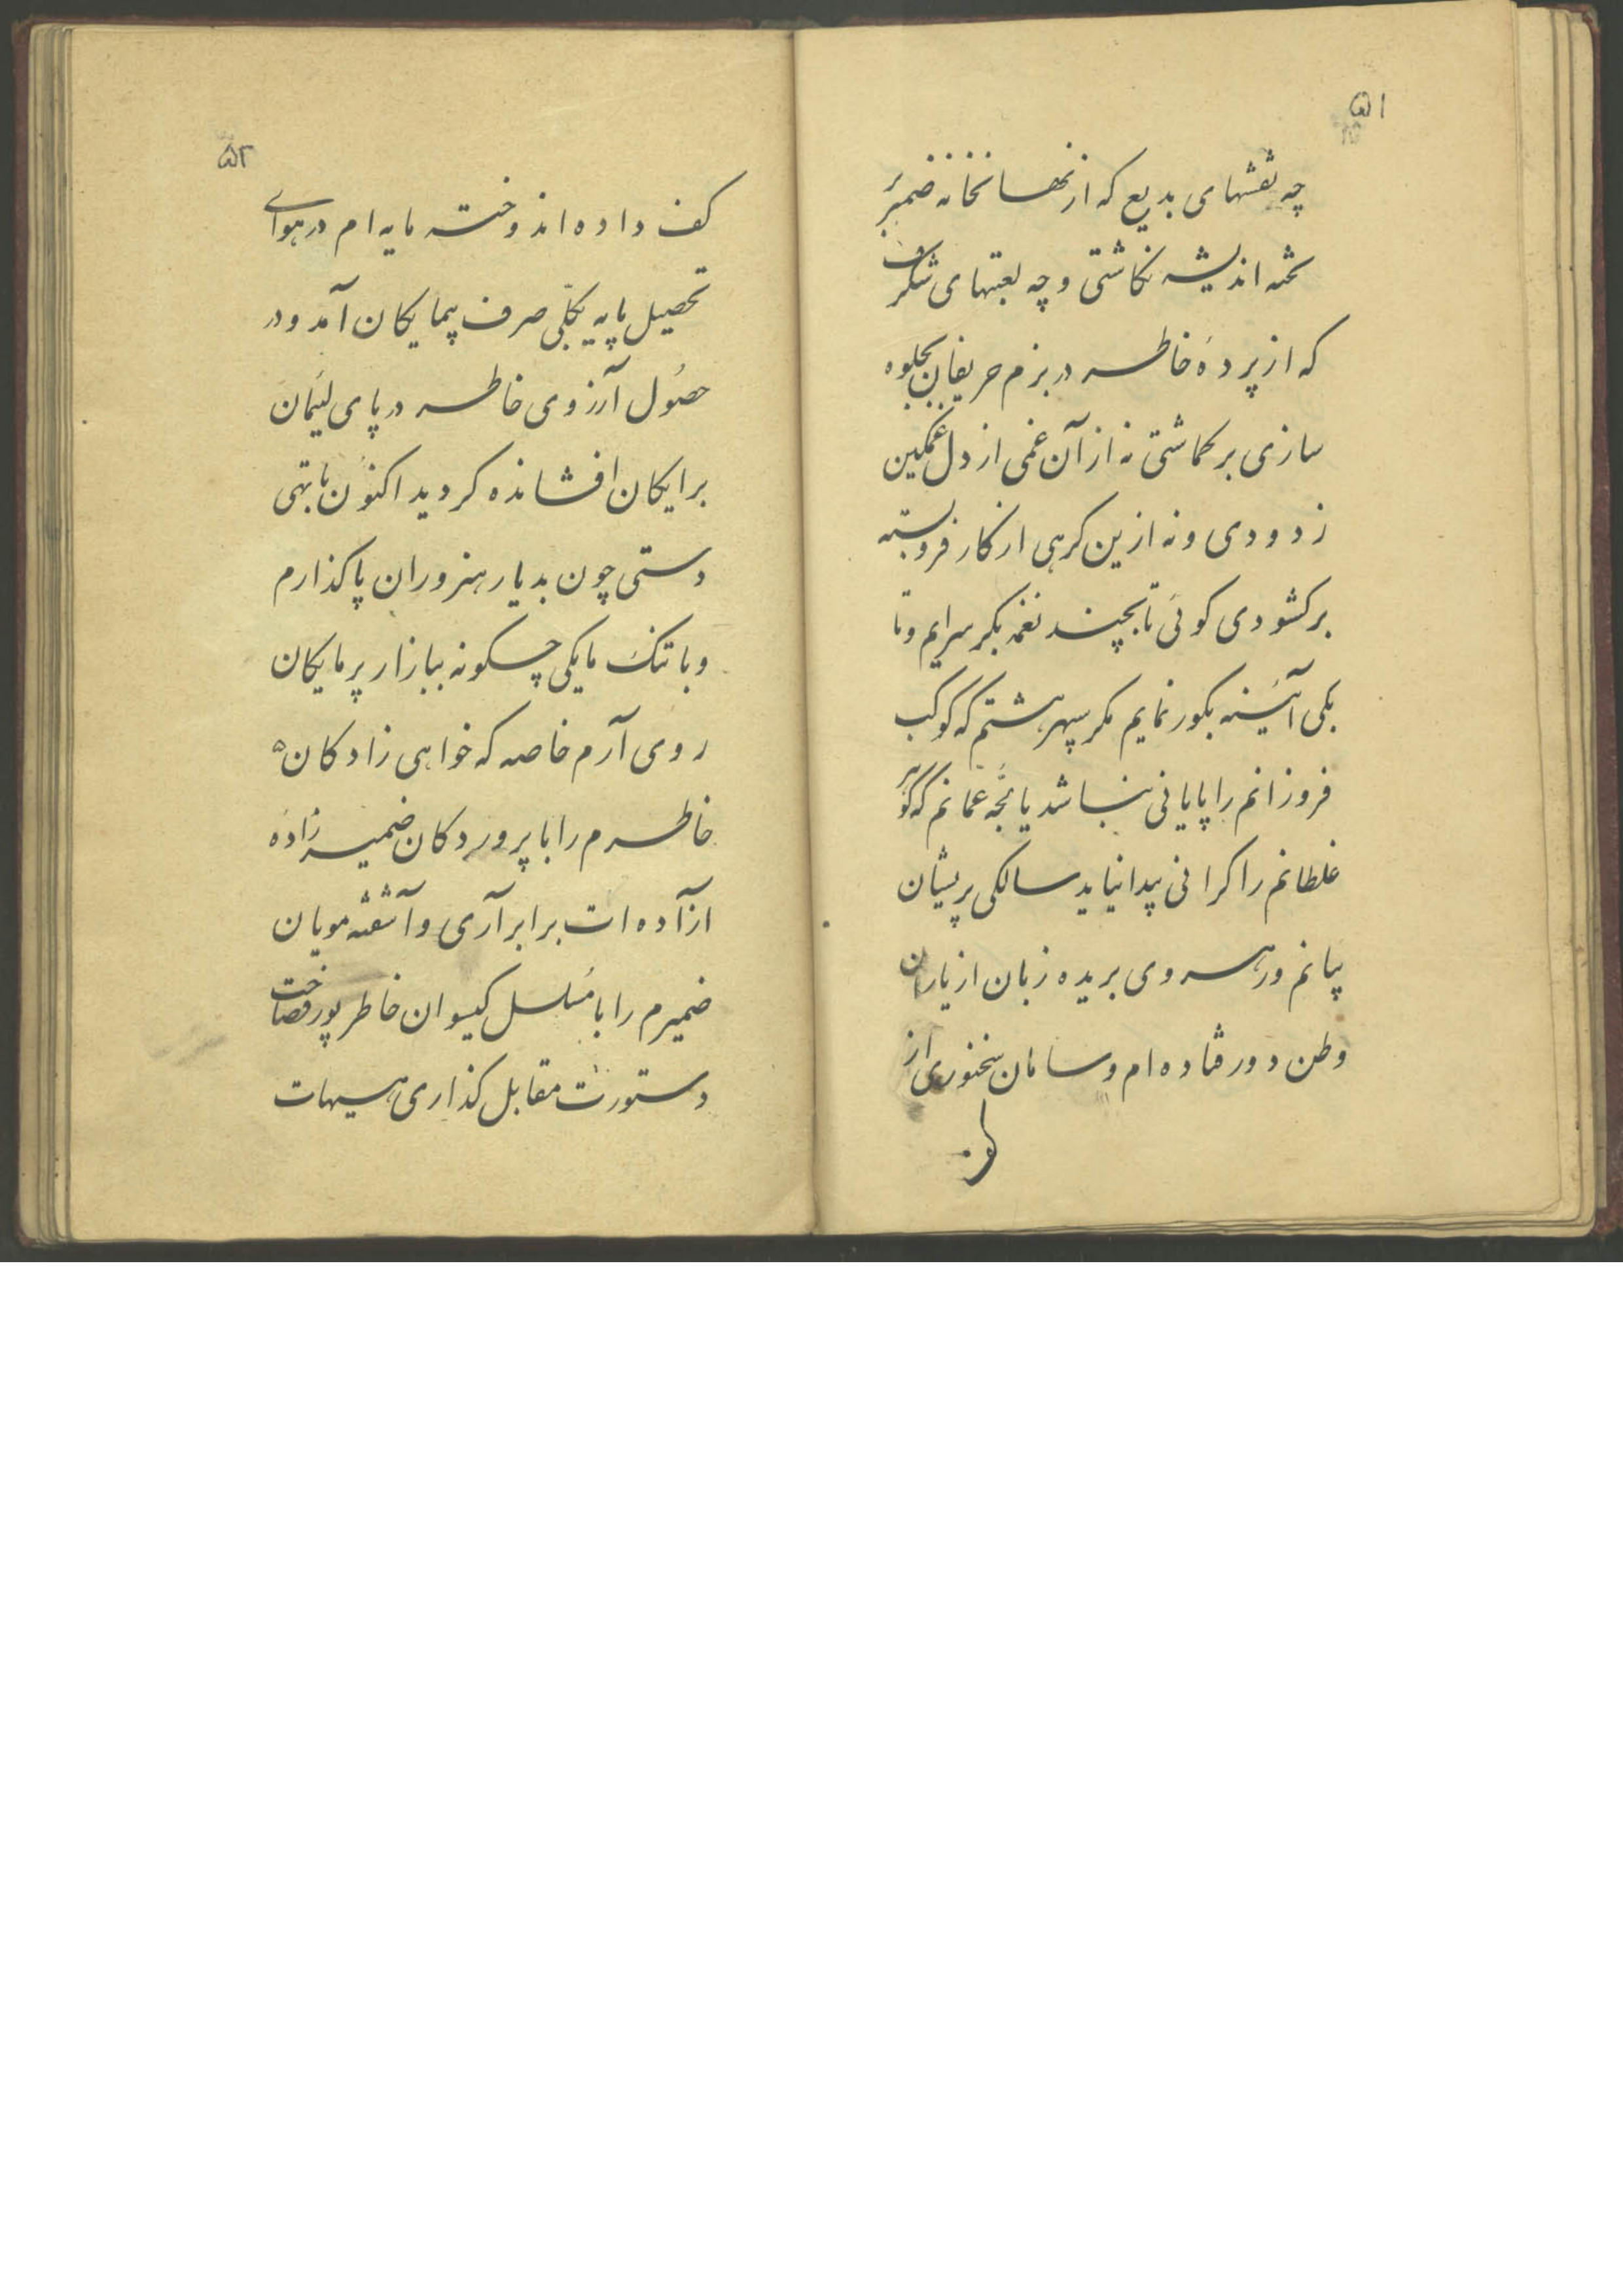 ۵۱
چه نقشهای بدیع که از نهانخانه ضمیر بر
تخته اندیشه نکاشتی و چه لعبتهای شکرف
که از پردهٔ خاطر در بزم حریفان بجلوه
سازی برکماشتی نه از آن غمی از دل غمکین
زدودی و نه ازین کرهی از کار فروبسته
برکشودی کوئی تا بچند نغمه بکر سرایم و تا
بکی آئینه بکور نمایم مکر سپهر هشتم که کوکب
فروزانم را پایانی نباشد یا لجّه عمّانم که کوهر
غلطانم را کرانی پیدا نیاید سالکی پریشان
پیانم و رهروی بریده زبان از یاران
وطن دور فتاده ام و سامان سخنوری از
کف
۵۲
کف داده اندوخته مایه ام در هوای
تحصیل پایه بکلّی صرف بیمایکان آمد و در
حصول آرزوی خاطر در پای لئیمان
برایکان افشانده کردید اکنون با تهی
دستی چون بدیار هنروران پا کذارم
و با تنک مایکی چسکونه ببازار پرمایکان
روی آرم خاصه که خواهی زادکان
خاطرم را با پروردکان ضمیر زاده
ازآده ات برابر آری و آشفته مویان
ضمیرم را با مسلسل کیسوان خاطر پور فصاحت
دستورت مقابل کذاری هیهات